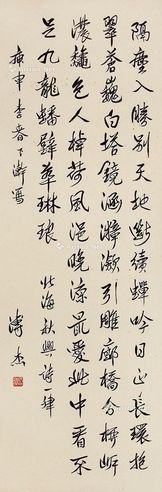 隔塵入勝別天地斷續蟬吟日正長環抱
翠蒼巍白塔鏡涵漪引雕廊橋分柳
濃穠色人棹荷風浥晚涼最愛此中看不
足九龍蟠壁萃琳琅
北海秋興詩一律
庚申季春下澣寫
溥杰